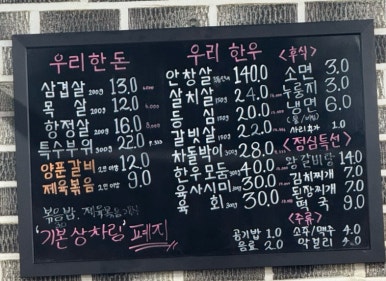 우리한돈
삼겹살 200g 13.0
목살 200g 12.0
항정살 200g 16.0 8.000
특수부위 22.0
양푼갈비 2인 이상 12.0
제육볶음 2인 이상 9.0
볶음밥,
'기본 상차림' 폐지
우리 한우
안창살 140.0
살치살 24.0
등심 20.0
갈비살 22.0
차돌박이 300g 28.0
한우모둠 300g 40.0
육사시미 300g 30.0
육회 300g 30.0
<후식>
소면 3.0
누룽지 3.0
냉면 6.0
(물/비빔)
사리추가 1.0
<점심특선>
왕갈비탕 14.0
김치찌개 7.0
된장찌개 7.0
떡국 9.0
<주류>
공기밥 1.0 소주/맥주 4.0
음료 2.0 막걸리 4.0